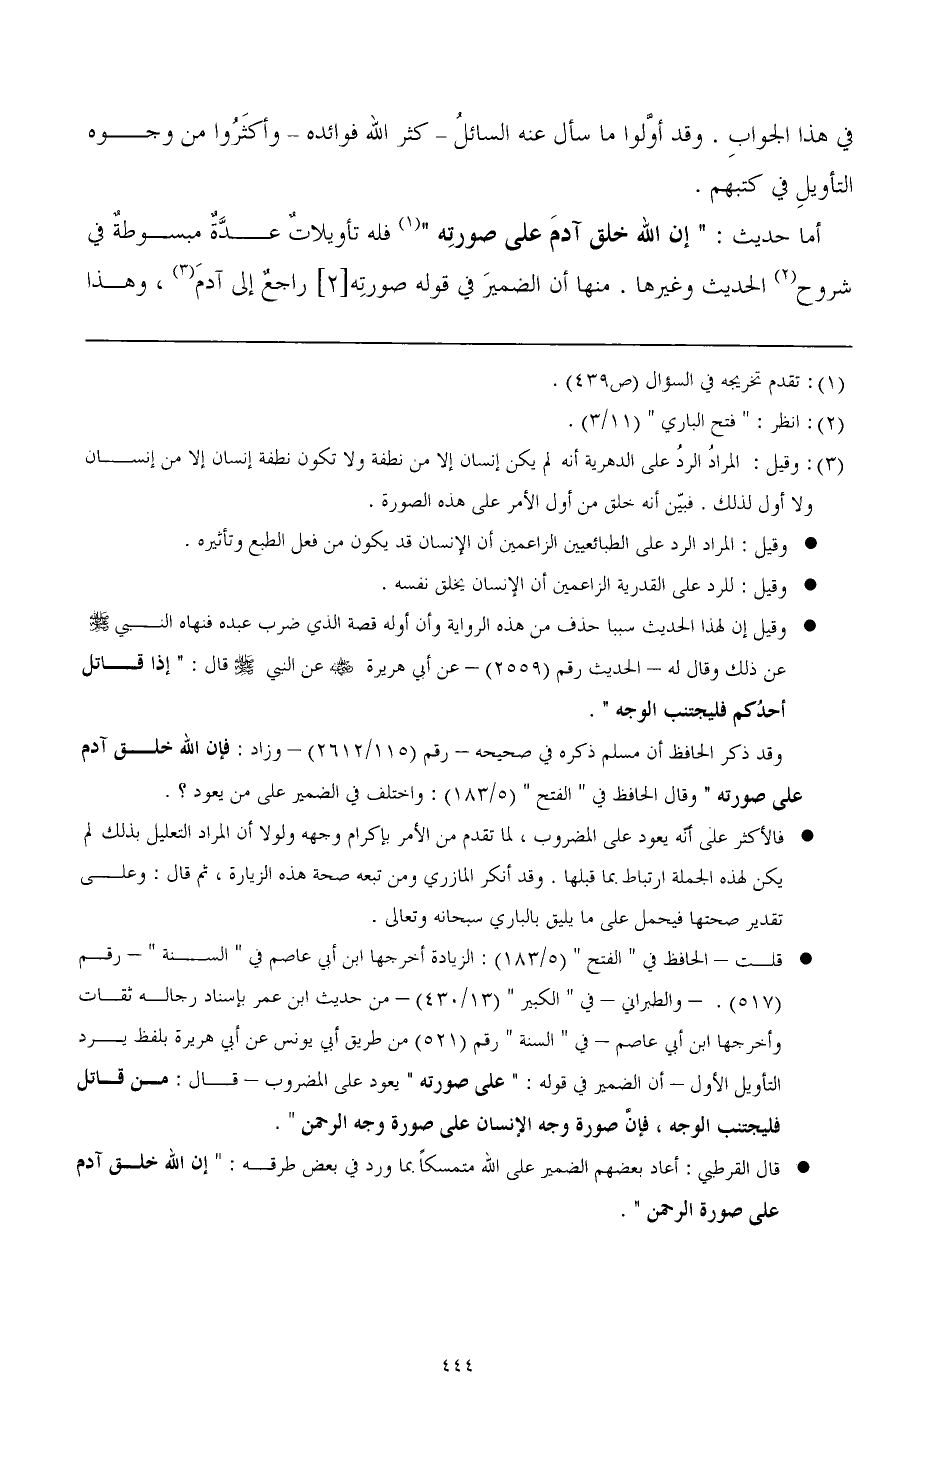 في هذا الجوابِ . وقد أوَّلوا ما سأل عنه السائلُ – كثر الله فوائده – وأكثَرُوا من وجـــوه
التأويلِ في كتبهم .
أما حديث : " إن الله خلق آدمَ على صورتِه "(١) فله تأويلاتٌ عـــدَّةٌ مبســوطةٌ في
شروح(٢) الحديث وغيرها . منها أن الضميرَ في قوله صورتِه[٢] راجعٌ إلى آدمَ(٣) ، وهـــذا
(١): تقدم تخريجه في السؤال (ص٤٣٩) .
(٢): انظر : " فتح الباري " (٣/١١) .
(٣): وقيل : المرادُ الردُ على الدهرية أنه لم يكن إنسان إلا من نطفة ولا تكون نطفة إنسان إلا من إنســـان
ولا أول لذلك . فبيّن أنه خلق من أول الأمر على هذه الصورة .
● وقيل : المراد الرد على الطبائعيين الزاعمين أن الإنسان قد يكون من فعل الطبع وتأثيره .
● وقيل : للرد على القدرية الزاعمين أن الإنسان يخلق نفسه .
● وقيل إن لهذا الحديث سببا حذف من هذه الرواية وأن أوله قصة الذي ضرب عبده فنهاه النـــبي ﷺ
عن ذلك وقال له – الحديث رقم (٢٥٥٩) – عن أبي هريرة ﷺ عن النبي ﷺ قال : " إذا قـــاتل
أحدُكم فليجتنب الوجه " .
وقد ذكر الحافظ أن مسلم ذكره في صحيحه – رقم (٢٦١٢/١١٥) – وزاد : فإن الله خلـــق آدم
على صورته " وقال الحافظ في " الفتح " (١٨٣/٥) : واختلف في الضمير على من يعود ؟ .
● فالأكثر على أنّه يعود على المضروب ، لما تقدم من الأمر بإكرام وجهه ولولا أن المراد التعليل بذلك لم
يكن لهذه الجملة ارتباط بما قبلها . وقد أنكر المازري ومن تبعه صحة هذه الزيارة ، ثم قال : وعلـــى
تقدير صحتها فيحمل على ما يليق بالباري سبحانه وتعالى .
● قلـــت – الحافظ في " الفتح " (١٨٣/٥) : الزيادة أخرجها ابن أبي عاصم في " الســـنة " – رقـــم
(٥١٧) . – والطبراني – في " الكبير " (٤٣٠/١٣) – من حديث ابن عمر بإسناد رجالـــه ثقـــات
وأخرجها ابن أبي عاصم – في " السنة " رقم (٥٢١) من طريق أبي يونس عن أبي هريرة بلفظ يـــرد
التأويل الأول – أن الضمير في قوله : " على صورته " يعود على المضروب – قـــال : مـــن قـــاتل
فليجتنب الوجه ، فإنَّ صورة وجه الإنسان على صورة وجه الرحمن " .
● قال القرطبي : أعاد بعضهم الضمير على الله متمسكاً بما ورد في بعض طرقـــه : " إن الله خلـــق آدم
على صورة الرحمن " .
٤٤٤